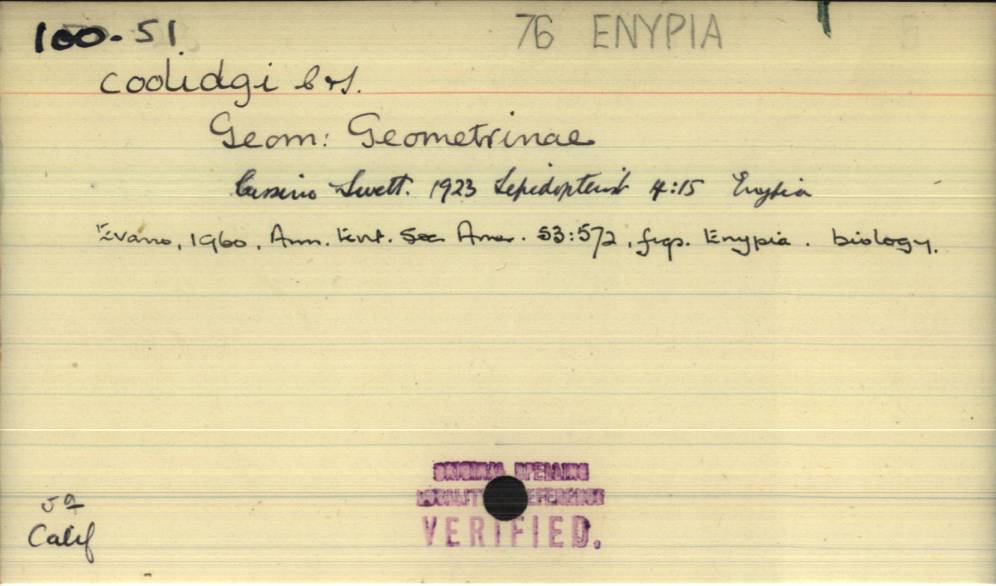 100-51 76 ENYPIA
coolidgi C & S.
Geom: Geometrinae
Cassino Swett. 1923 Lepidopterist 4:15 Enypia
Evans, 1960, Ann. Ent. Soc. Amer. 53:572, figs. Enypia. biology.
ORIGINAL SPELLING
LOCALITY REFERENCE
VERIFIED.
Calif